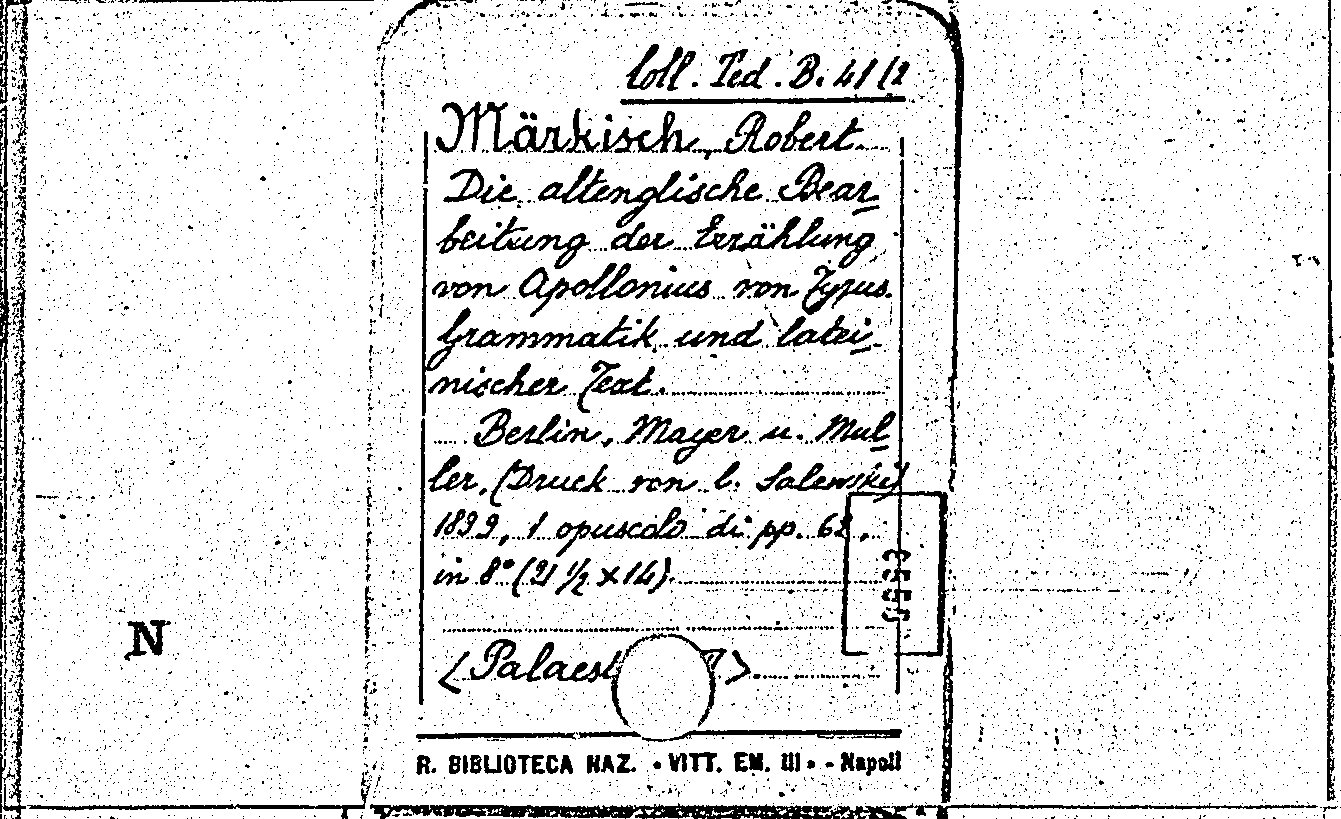 Coll. Ted. B. 41/2
Märkisch, Robert.
Die altenglische Bear-
beitung der Erzählung
von Apollonius von Tyrus.
Grammatik und latei-
nischer Text.
Berlin, Mayer u. Mul-
ler, (Druck von C. Salewski)
1899, 1 opuscolo di pp. 62,
in 8° (21 ½ x 14).
N
<Palaest >
R. BIBLIOTECA NAZ. "VITT. EM. III" - Napoli